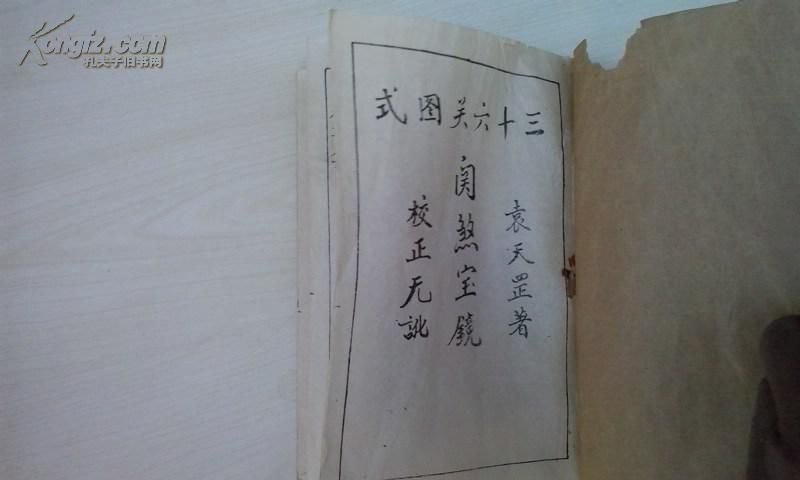 Kongfz.com
孔夫子旧书网
三十六关图式
袁天罡著
関煞宝镜
校正无訛